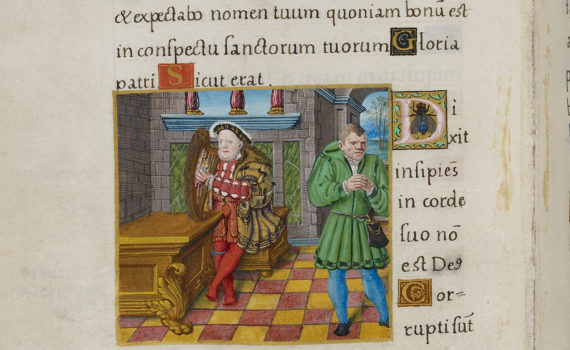 & expectabo nomen tuum quoniam bonū est
in conspectu sanctorum tuorum Gloria
patri Sicut erat .
Di
xit
insipiēs
in corde
suo nō
est Deꝰ
Cor=
rupti sūt